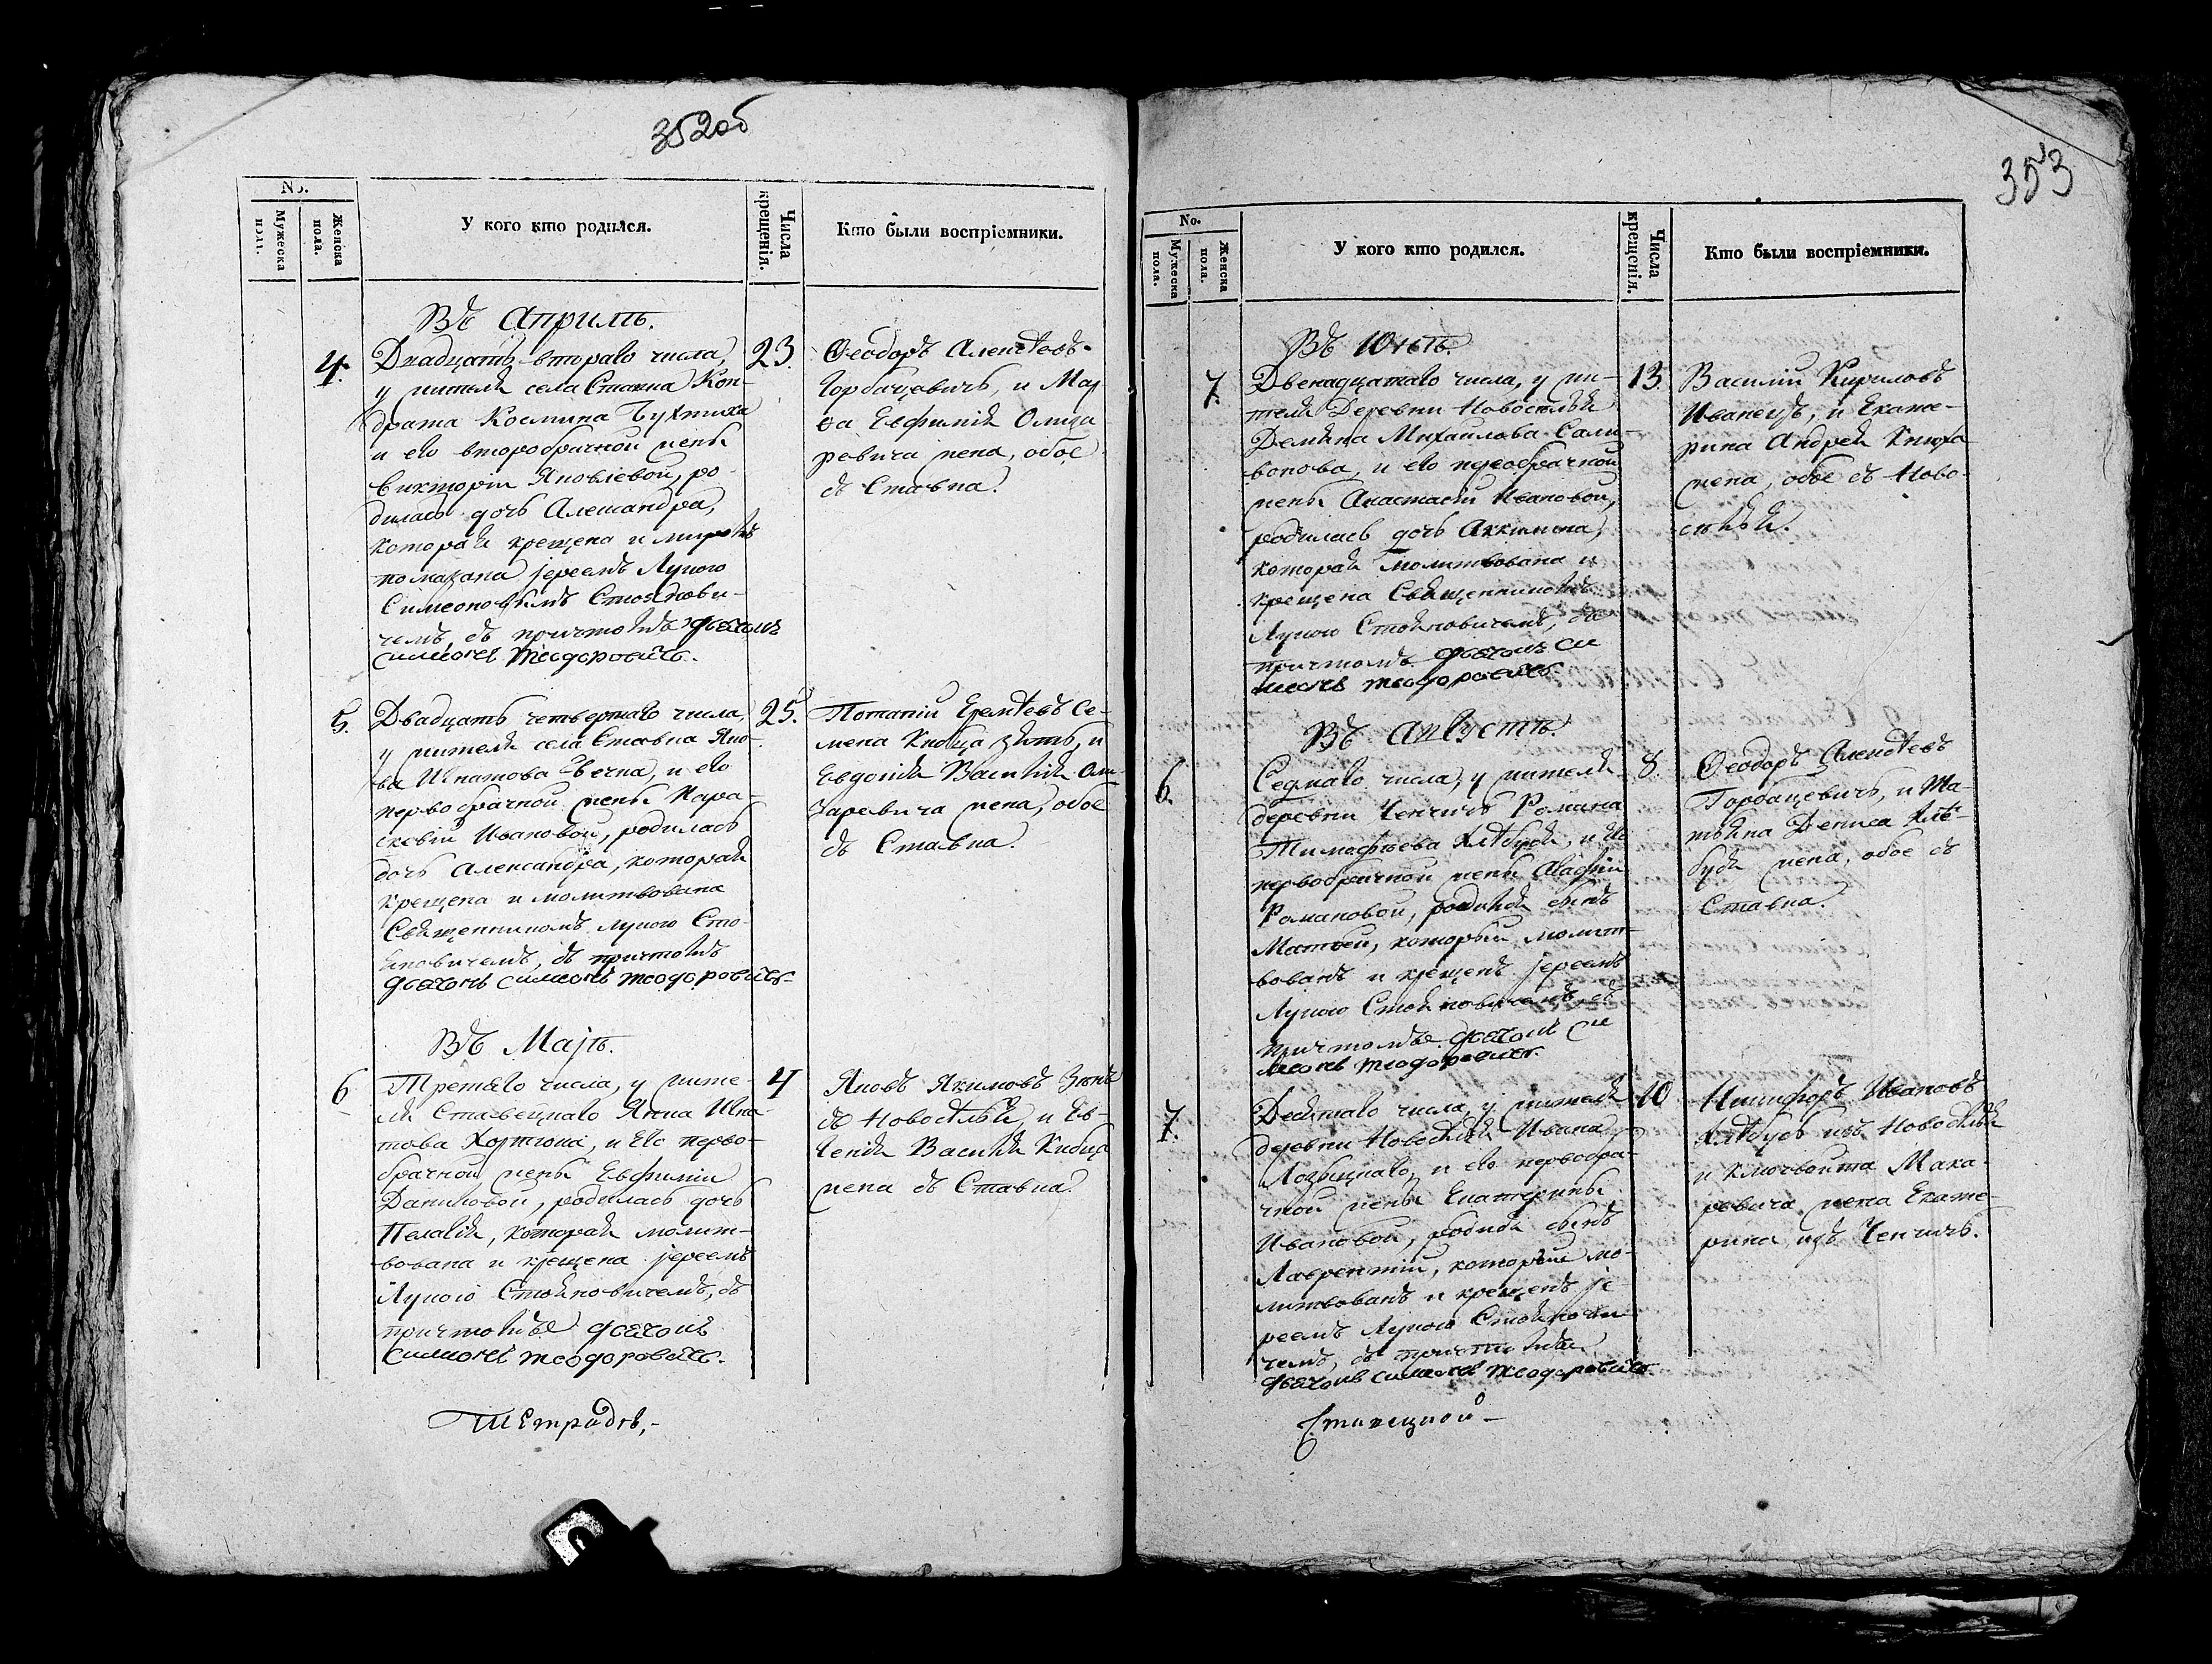 352об
No.
Мужеска пола.
Женска пола.
У кого кто родился.
Числа крещенія.
Кто были воспріемники.
Въ Априлѣ.
4.
Двадцать втораго числа,
у жителя села Ставка Кон-
драта Космина
и его второбрачной жены
Викторіи Яковлевой, ро-
дилась дочь Александра,
которая крещена и миромъ
помазана іереемъ Лукою
Симеоновымъ Стояновичемъ
чемъ, съ причтомъ дьячокъ
Симеонъ Теодоровичъ.
23
Ѳеодоръ Алексѣевъ
Горбацевичъ, и Мар-
ѳа Евфимія
ревича жена, обое
съ Ставка.
5.
Двадцать четвертаго числа,
у жителя села Ставка Яко-
ва Игнатова и его
первобрачной жены Пара-
скевіи Ивановой, родилась
дочь Александра, которая
крещена и молитвована
Священникомъ Лукою Сто-
яновичемъ, съ причтомъ
дьячокъ Симеонъ Теодоровичъ
25.
Потапій Еремѣевъ Се-
мена зять, и
Евдокія Василія
заревича жена, обое
съ Ставка.
Въ Маіѣ.
6
Третяго числа, у жите-
ля Ставецкаго Якима Игна-
това и его перво-
брачной жены Евфиміи
Даниловой, родилась дочь
Пелагія, которая молит-
вована и крещена іереемъ
Лукою Стояновичемъ, съ
причтомъ дьячокъ
Симеонъ Теодоровичъ.
4
Яковъ Якимовъ
съ Новосѣлья, и Ев-
генія Василія
жена съ Ставка.
Тетрадь,-
353
No.
Мужеска пола.
Женска пола.
У кого кто родился.
Числа крещенія.
Кто были воспріемники.
Въ Юлѣ.
7.
Двенадцатаго числа, у жи-
теля Деревни Новоселья
Демяна Михайлова Сали-
вонова, и его первобрачной
жены Анастасіи Ивановой,
родилась дочь Акилина,
которая молитвована и
крещена Священникомъ
Лукою Стояновичемъ, съ
причтомъ дьячокъ Си
меонъ Теодоровичъ
13.
Василій Кириловъ
Иванецъ, и Екате-
рина Андрея
жена, обое съ Ново-
сѣлья.
Въ Августѣ.
6.
Седмаго числа, у жителя
деревни Ченчичъ Романа
Тимофѣева Хлѣбуся, и его
первобрачной жены Агафіи
Романовой, родился сынъ
Матвей, который молит-
вованъ и крещенъ іереемъ
Лукою Стояновичемъ, съ
причтомъ дьячокъ Си
меонъ Теодоровичъ.
8.
Ѳеодоръ Алексѣевъ
Горбацевичъ, и Та-
тьяна Дениса Хлѣ-
буся жена, обое съ
Ставка.
7.
Десятаго числа, у жителя
деревни Новосѣлья Ивана
и его первобра-
чной жены Екатерины
Ивановой, родился сынъ
Лаврентій, который мо-
литвованъ и крещенъ іе
реемъ Лукою Стоянови
чемъ, съ причтомъ
дьячокъ Симеонъ Теодоровичъ.
10
Никифоръ Ивановъ
Хлѣбусь изъ Новосѣлья
и Ключвойта Мака-
ревича жена Екате-
рина изъ Ченчичъ.
Ставецкой-